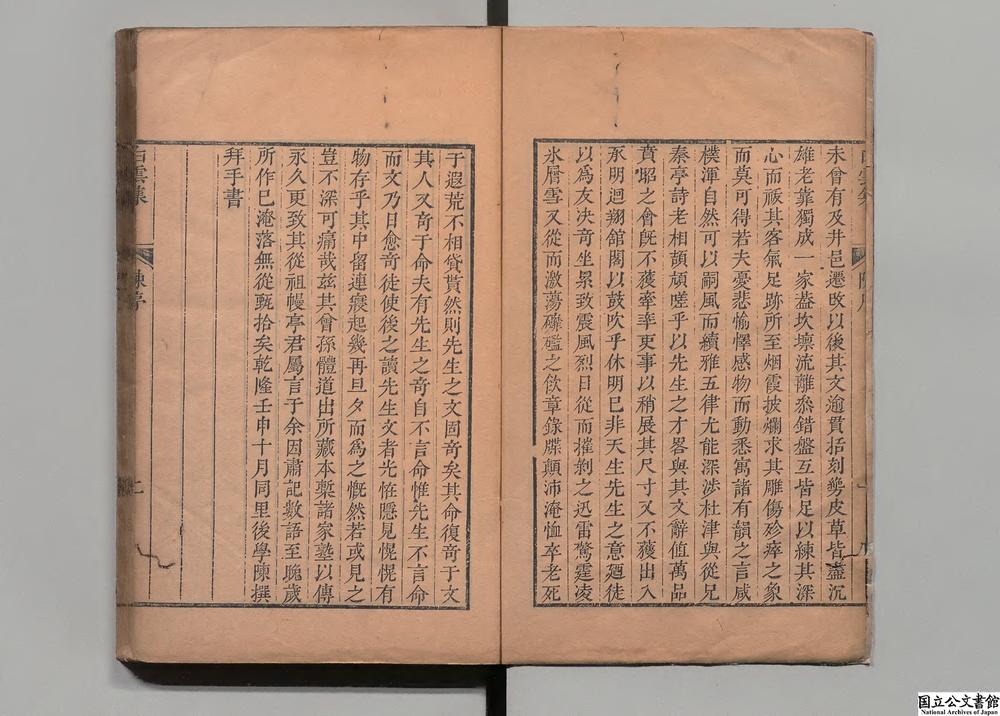 未曾有及井邑遷改以後其文逾貫括刻㔢皮草皆盡沉
雄老靠獨成一家葢坎壈流離叅錯盤互皆足以練其深
心而祓其客氣足跡所至烟霞披爛求其雕傷殄瘁之象
而莫可得若夫憂悲愉懌感物而動悉寓諸有韻之言咸
樸渾自然可以嗣風而續雅五律尤能深涉杜津與從兄
秦亭詩老相頡頏嗟乎以先生之才畧與其文辭値萬品
賁昭之會旣不獲牽率更事以稍展其尺寸又不獲出入
承明迴翔舘閣以鼓吹乎休明已非天生先生之意廼徒
以爲友决奇坐累致震風烈日從而摧剝之迅雷驚霆凌
氷層雪又從而激蕩礲礚之飲章錄牒顛沛淹恤卒老死
于遐荒不相貸貰然則先生之文固奇矣其命復奇于文
其人又奇于命夫有先生之奇自不言命惟先生不言命
而文乃日愈奇徒使後之讀先生文者光恠隱見怳怳有
物存乎其中留連寢起幾再旦夕而爲之慨然若或見之
豈不深可痛哉兹其曾孫體道出所藏本槧諸家塾以傳
永久更致其從祖幔亭君屬言于余因肅記數語至脁歲
所作已淹落無從甄拾矣乾隆壬申十月同里後學陳撰
拜手書
白雲集
陳序
二